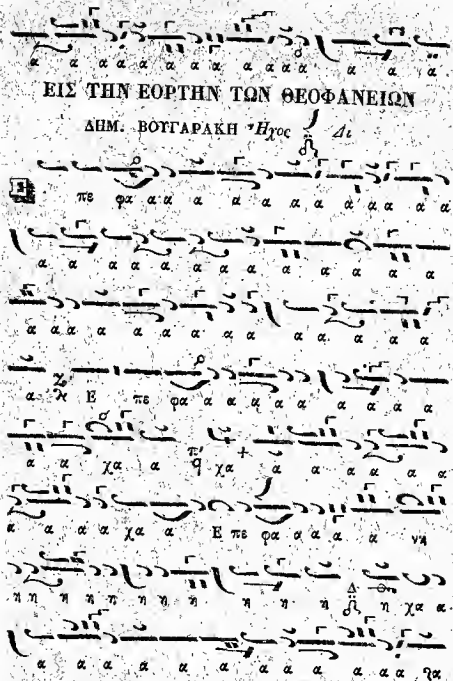 α α α α α α α α α α α α α α α
ΕΙΣ ΤΗΝ ΕΟΡΤΗΝ ΤΩΝ ΘΕΟΦΑΝΕΙΩΝ
ΔΗΜ. ΒΟΥΓΑΡΑΚΗ Ἦχος Δι
πε φα α α α α α α α α α α α
α α α α α α α α α α α α α
α α α α α α α α α α α α
α Ε πε φα α α α α α α α α α
α α χα α χα α α α α α α
α α α α χα α Ε πε φα α α α α νη
η η η η η η η η η η Δ η χα α
α α α α α α α α α α α α